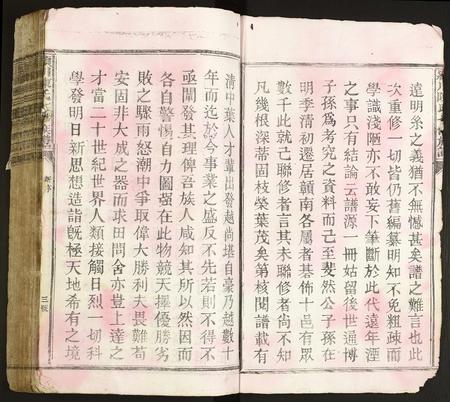 遠明糸之義猶不無憾甚矣譜之難言也此
次重修一切皆仍舊編纂明知不免粗疎而
學識淺陋亦不敢妄下筆斷於此代遠年湮
之事只有結論云譜源一冊姑留後世通博
子孫爲考究之資料而已至斐然公子孫在
明季清初遷居贛南各屬者基佈十邑有眾
數千此就已聯修者言其未聯修者尚不知
凡幾根深蒂固枝榮葉茂矣第核閱譜載有
清中葉人才輩出發越尚堪自豪乃越數十
年而迄於今事業之盛反不先若則不得不
亟闡發其理俾吾族人咸知其所以然因而
各自警惕自力圖强在此物競天擇優勝劣
敗之驟雨怒潮中爭取偉大勝利夫畏難苟
安固非大成之器而求田問舍亦豈上達之
才當二十世紀世界人類接觸日烈一切科
學發明日新思想造詣旣極天地希有之境
三